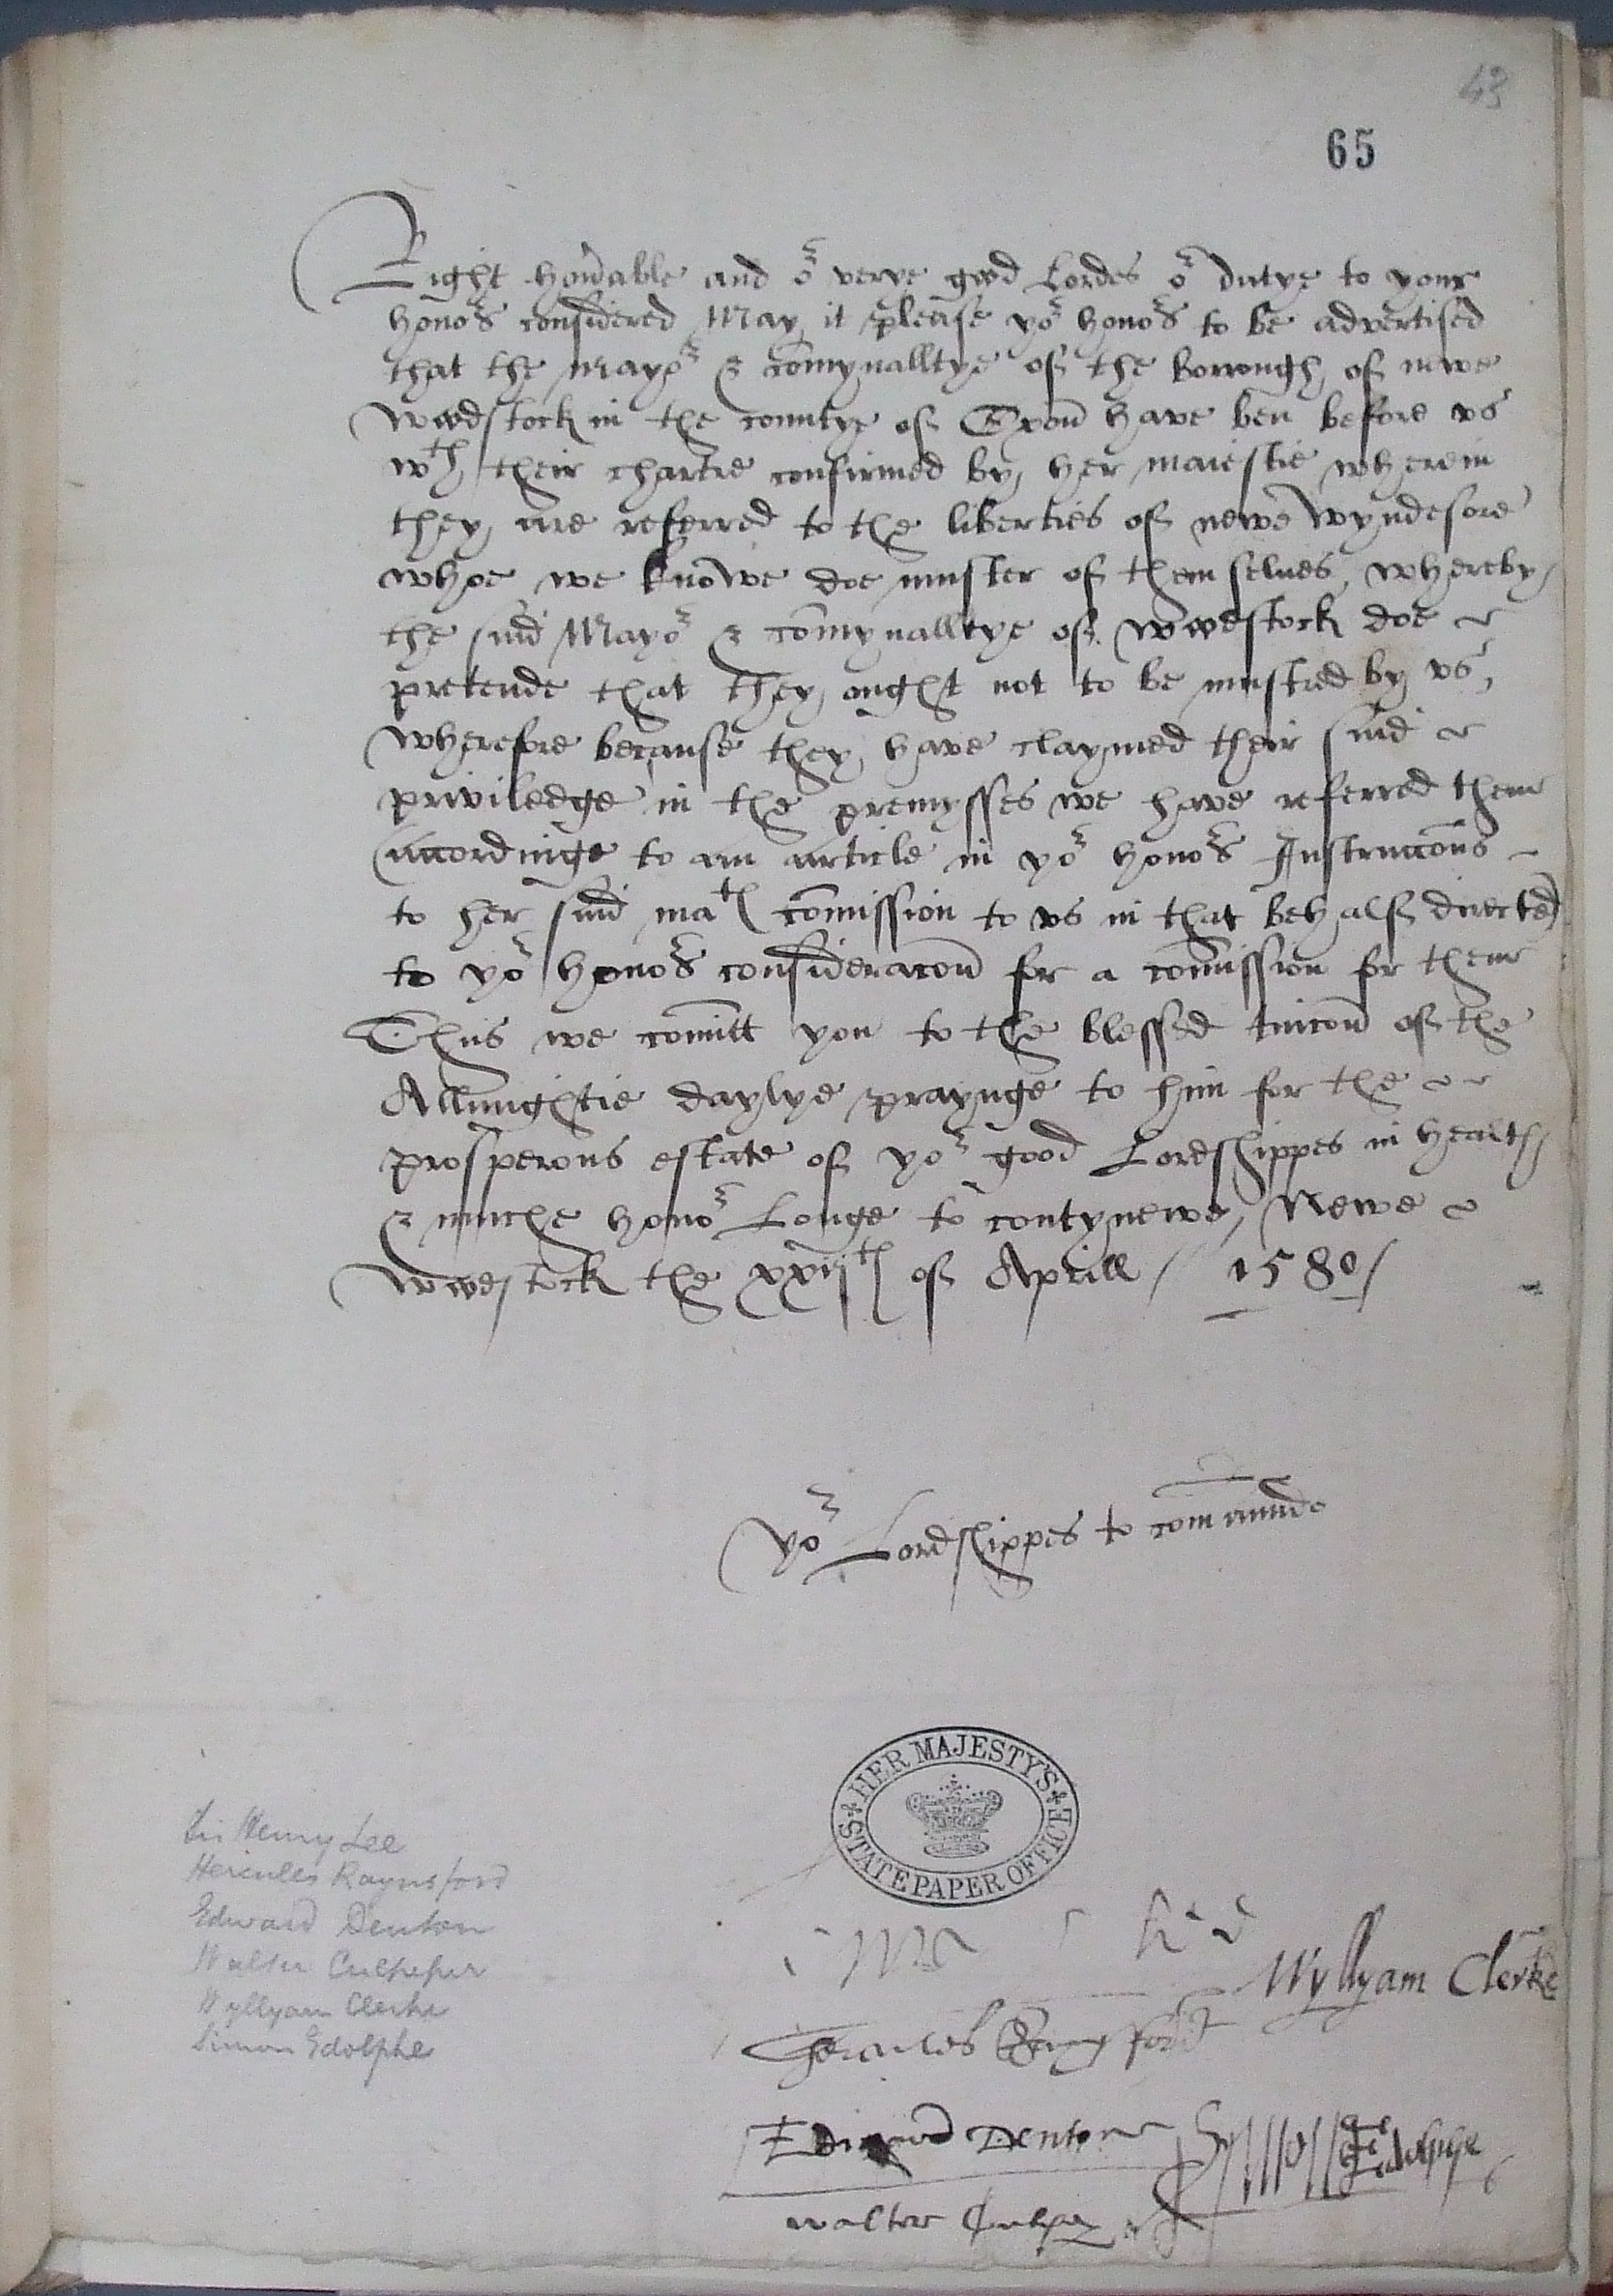 43
65
Right honorable and or verye good Lordes or dutye to your
honors considered May it please yor honors to be advertised
that the Mayor & comynalltye of the borrough of newe
Woodstock in the countye of Oxon have ben before vs
wth their chartre confirmed by her maiestie wherein
they are referred to the liberties of newe wyndesore
whoe we knowe doe muster of them selues, whereby
the said Mayor & comynalltye of woodstock doe
pretende that they ought not to be mustred by vs,
wherefore because they have claymed their said
priviledge in the premysses we have referred them
accordinge to an article in yor honors Instruccons
to her said matis comission to vs in that behalf directed
to yor honors consideracon for a comission for them
Thus we comitt you to the blessed tuicon of the
Allmightie daylye praynge to him for the
prosperous estate of yor good Lordshippes in health
& muche honor Longe to contynewe, Newe
Woodstock the xxijth of Aprill / 1580 /
Yor Lordshippes to commaunde
HER MAJESTY'S
STATE PAPER OFFICE
Sir Henry Lee
Hercules Raynsford
Edward Denton
Walter Culpeper
Wyllyam Clerke
Simon Edolphe
Wyllyam Clerke
Hercules Raynsford
Edward Denton
Symon Edolphe
Walter Culpeper